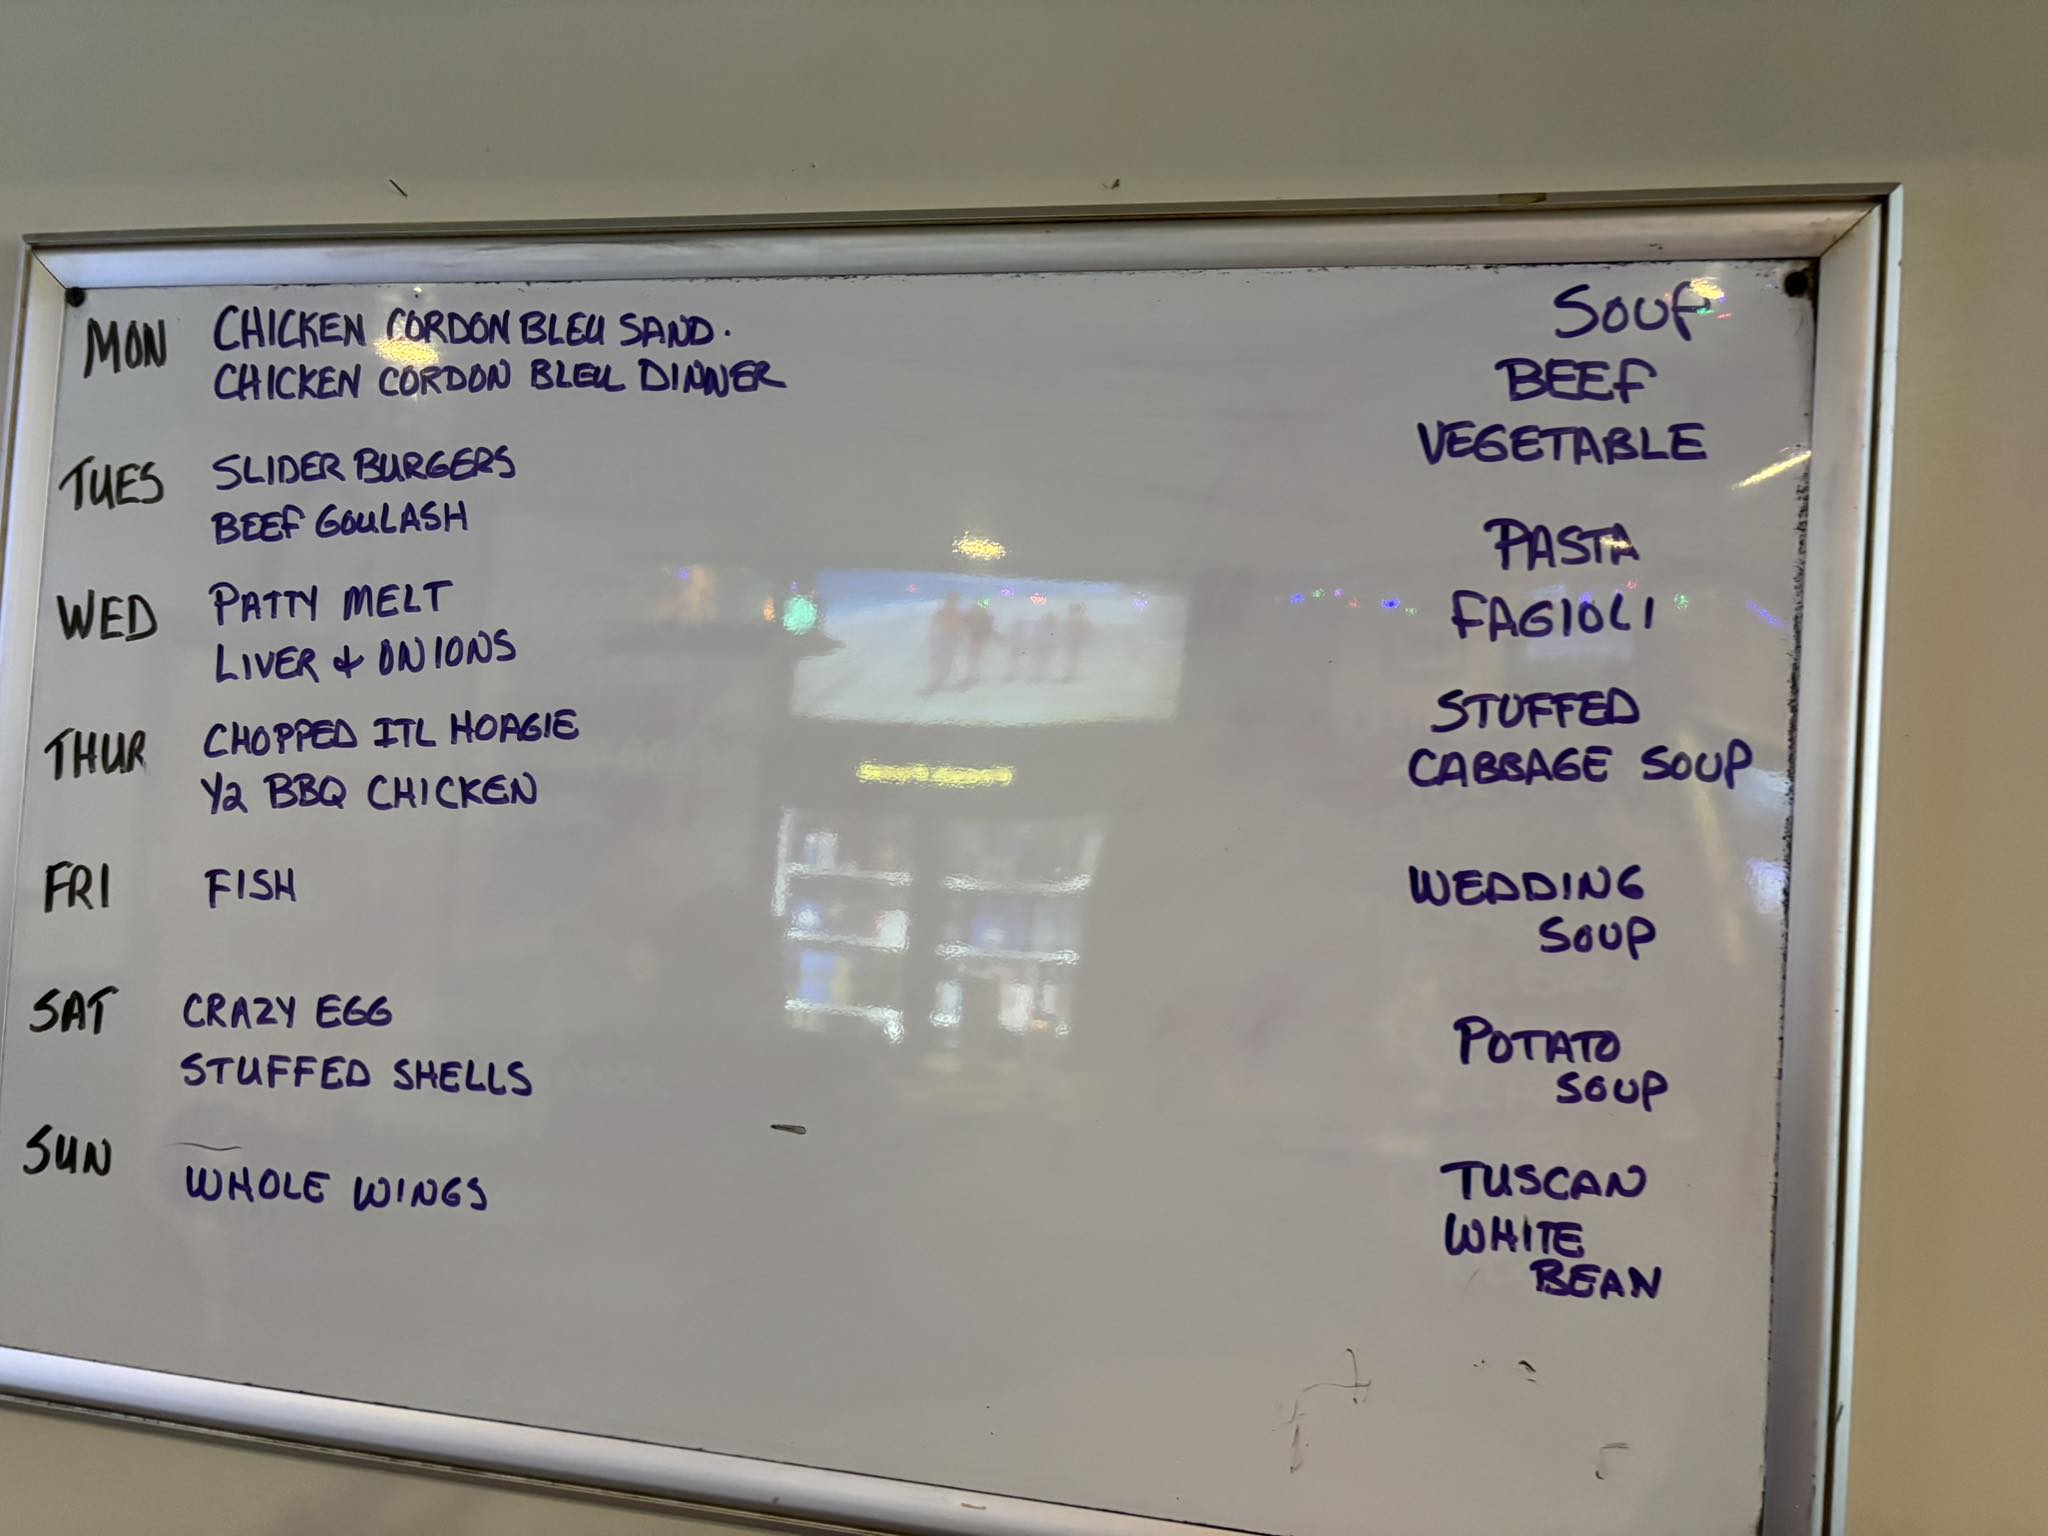 MON CHICKEN CORDON BLEU SAND.
CHICKEN CORDON BLEU DINNER
TUES SLIDER BURGERS
BEEF GOULASH
WED PATTY MELT
LIVER & ONIONS
THUR CHOPPED ITL HOAGIE
1/2 BBQ CHICKEN
FRI FISH
SAT CRAZY EGG
STUFFED SHELLS
SUN
WHOLE WINGS
SOUP
BEEF
VEGETABLE
PASTA
FAGIOLI
STUFFED
CABBAGE SOUP
WEDDING
SOUP
POTATO
SOUP
TUSCAN
WHITE
BEAN